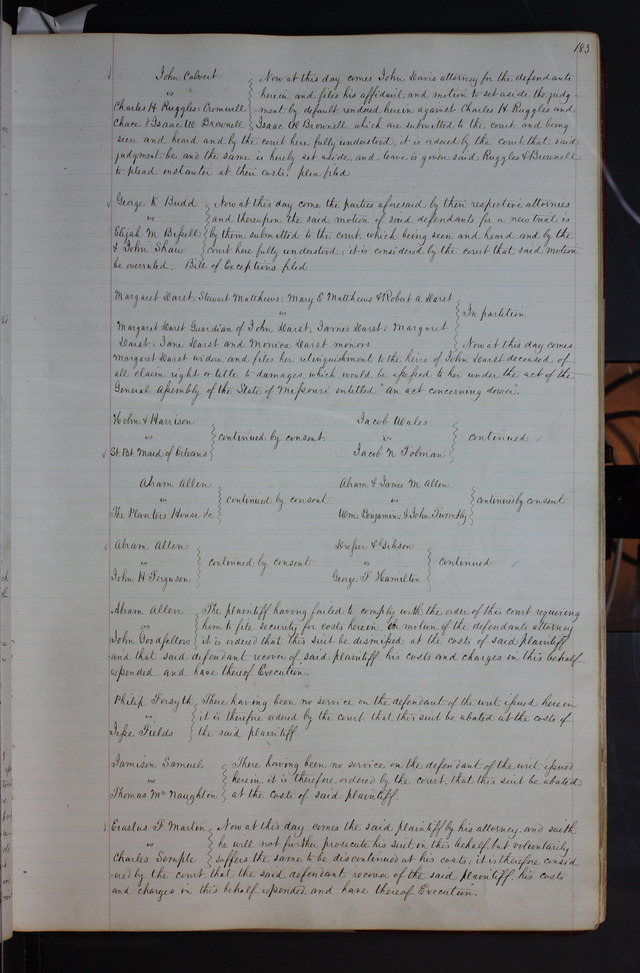 183
John Calvert Now at this day comes John Davis attorney for the defendants
vs herein, and files his affidavit and motion to set aside the judg-
Charles H Ruggles Cromwell ment by default rendered herein against Charles H Ruggles and
Chace & Isaac W Brownell Isaac W Brownell which are submitted to the court and being
seen and heard and by the court here fully understood, it is ordered by the court that said
judgment be and the same is hereby set aside, and leave is given said Ruggles & Brownell
to plead instanter at their costs. plea filed
George K Budd Now at this day come the parties aforesaid by their respective attornies
vs and thereupon the said motion of said defendants for a new trial is
Elijah M Bissell by them submitted to the court, which being seen and heard and by the
& John Shaw court here fully understood; it is considered by the court that said motion
be overruled. Bill of Exceptions filed
Margaret Darst, Stewart Matthews, Mary E Matthews & Robert A Darst
vs In partition
Margaret Darst Guardian of John Darst, James Darst, Margaret
Darst, Jane Darst and Monica Darst minors Now at this day comes
Margaret Darst widow and files her relinquishment to the heirs of John Darst deceased of
all claim right or title to damages, which would be assessed to her under the act of the
General Assembly of the State of Missouri entitled "an act concerning dower".
Holm & Harrison Jacob Wales
vs continued by consent. vs continued
St. Bt. Maid of Orleans Jacob N Tolman
Abram Allen Abram & James M Allen
vs continued by consent vs continued by consent
The Planters House &c Wm. Benjamin, & John Twombly
Abram Allen Dresser & Gibson
vs continued by consent vs continued
John H Ferguson George F Hamilton
Abram Allen The plaintiff having failed to comply with the order of this court requiring
vs him to file security for costs herein, on motion of the defendants attorney
John Goodfellow it is ordered that this suit be dismissed at the costs of said plaintiff
and that said defendant recover of said plaintiff his costs and charges in this behalf
expended and have thereof Execution.
Philip Forsyth There having been no service on the defendant of the writ issued herein
vs it is therefore ordered by the court that this suit be abated at the costs of
Jesse Fields the said plaintiff
Jamison Samuel There having been no service on the defendant of the writ issued
vs herein, it is therefore ordered by the court, that this suit be abated
Thomas McNaughton at the costs of said plaintiff.
Erastus F Martin Now at this day comes the said plaintiff by his attorney, and saith
vs he will not further prosecute his suit in this behalf but voluntarily
Charles Semple suffers the same to be discontinued at his costs; it is therefore consid
ered by the court that the said defendant recover of the said plaintiff; his costs
and charges in this behalf expended and have thereof Execution.